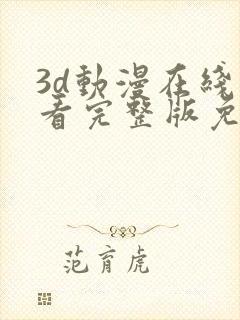 3d動漫在綫
看完整版免
范育虎